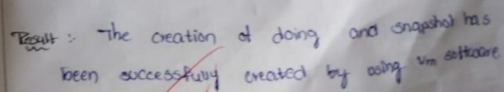 Result : The creation of doing and snapshot has
been successfully created by using Vm software